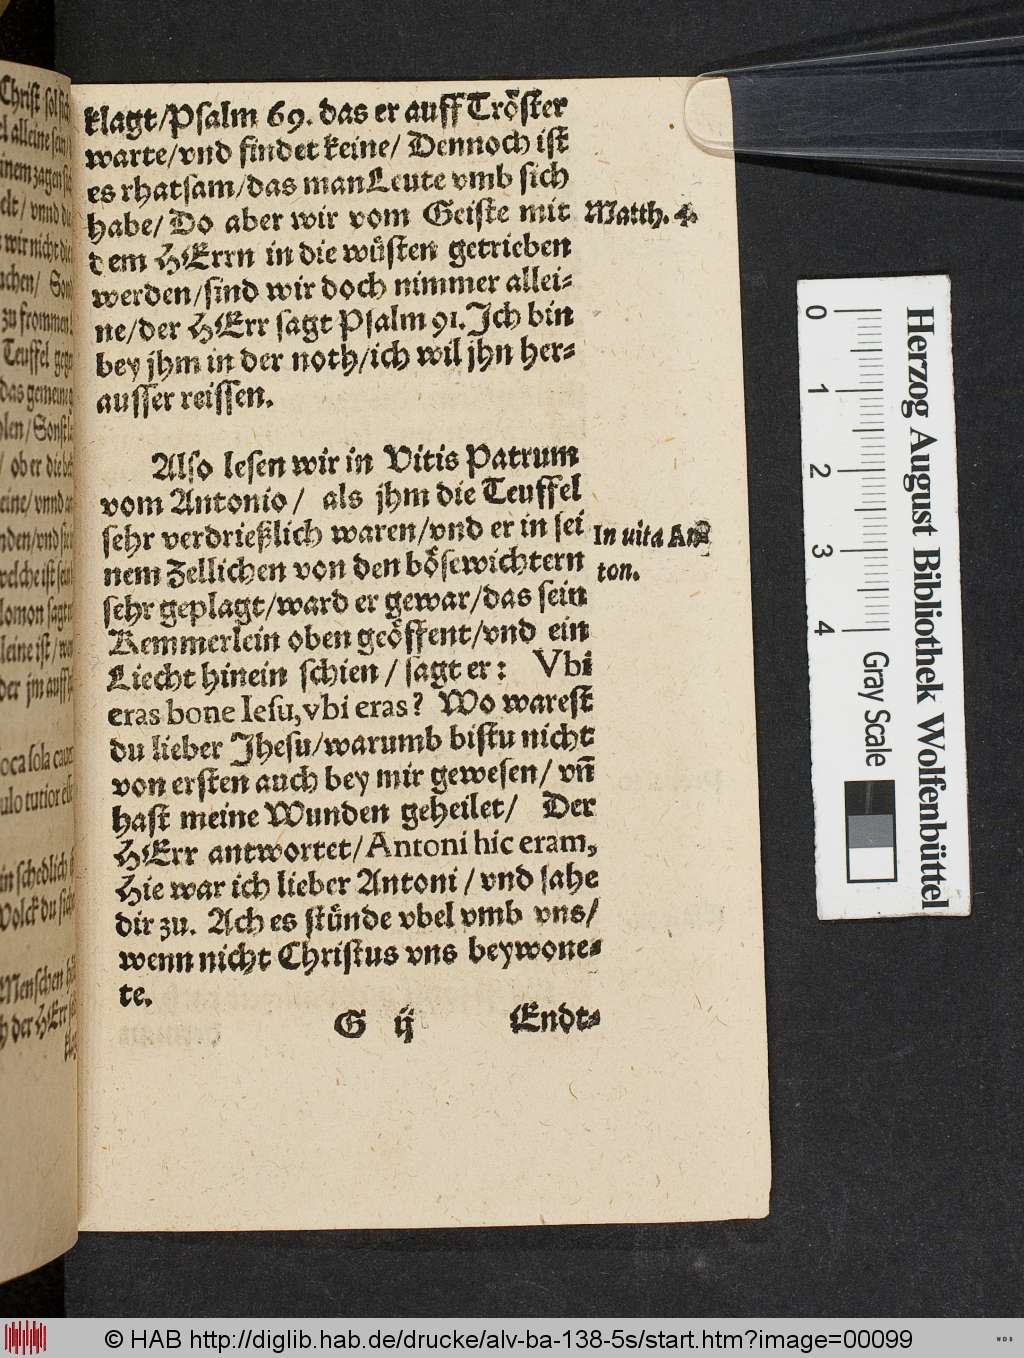 klagt/Psalm 69. das er auff Tröster
warte/vnd findet keine/ Dennoch ist
es rhatsam/das man Leute vmb sich
habe/ Do aber wir vom Geiste mit
dem HErrn in die wüsten getrieben
werden/sind wir doch nimmer allei-
ne/der HErr sagt Psalm 91. Ich bin
bey jhm in der noth/ich wil jhn her-
ausser reissen.
Matth. 4.
Also lesen wir in Vitis Patrum
vom Antonio/ als jhm die Teuffel
sehr verdrießlich waren/vnd er in sei
nem Zellichen von den bösewichtern
sehr geplagt/ward er gewar/das sein
Kemmerlein oben geöffent/vnd ein
Liecht hinein schien/ sagt er: Vbi
eras bone Iesu, vbi eras? Wo warest
du lieber Jhesu/warumb bistu nicht
von ersten auch bey mir gewesen/ vñ
hast meine Wunden geheilet/ Der
HErr antwortet/Antoni hic eram,
Hie war ich lieber Antoni/ vnd sahe
dir zu. Ach es stünde vbel vmb vns/
wenn nicht Christus vns beywone-
te.
In uita An
ton.
G ij Endt-
Christ
alleine
zagen
wir nicht
zu frommen
Teuffel
das gemein
/ Sonst
ist
sola
tutior
schedlich
Volck du
Menschen
der HErr
0 1 2 3 4
Gray Scale
Herzog August Bibliothek Wolfenbüttel
© HAB http://diglib.hab.de/drucke/alv-ba-138-5s/start.htm?image=00099
WDB